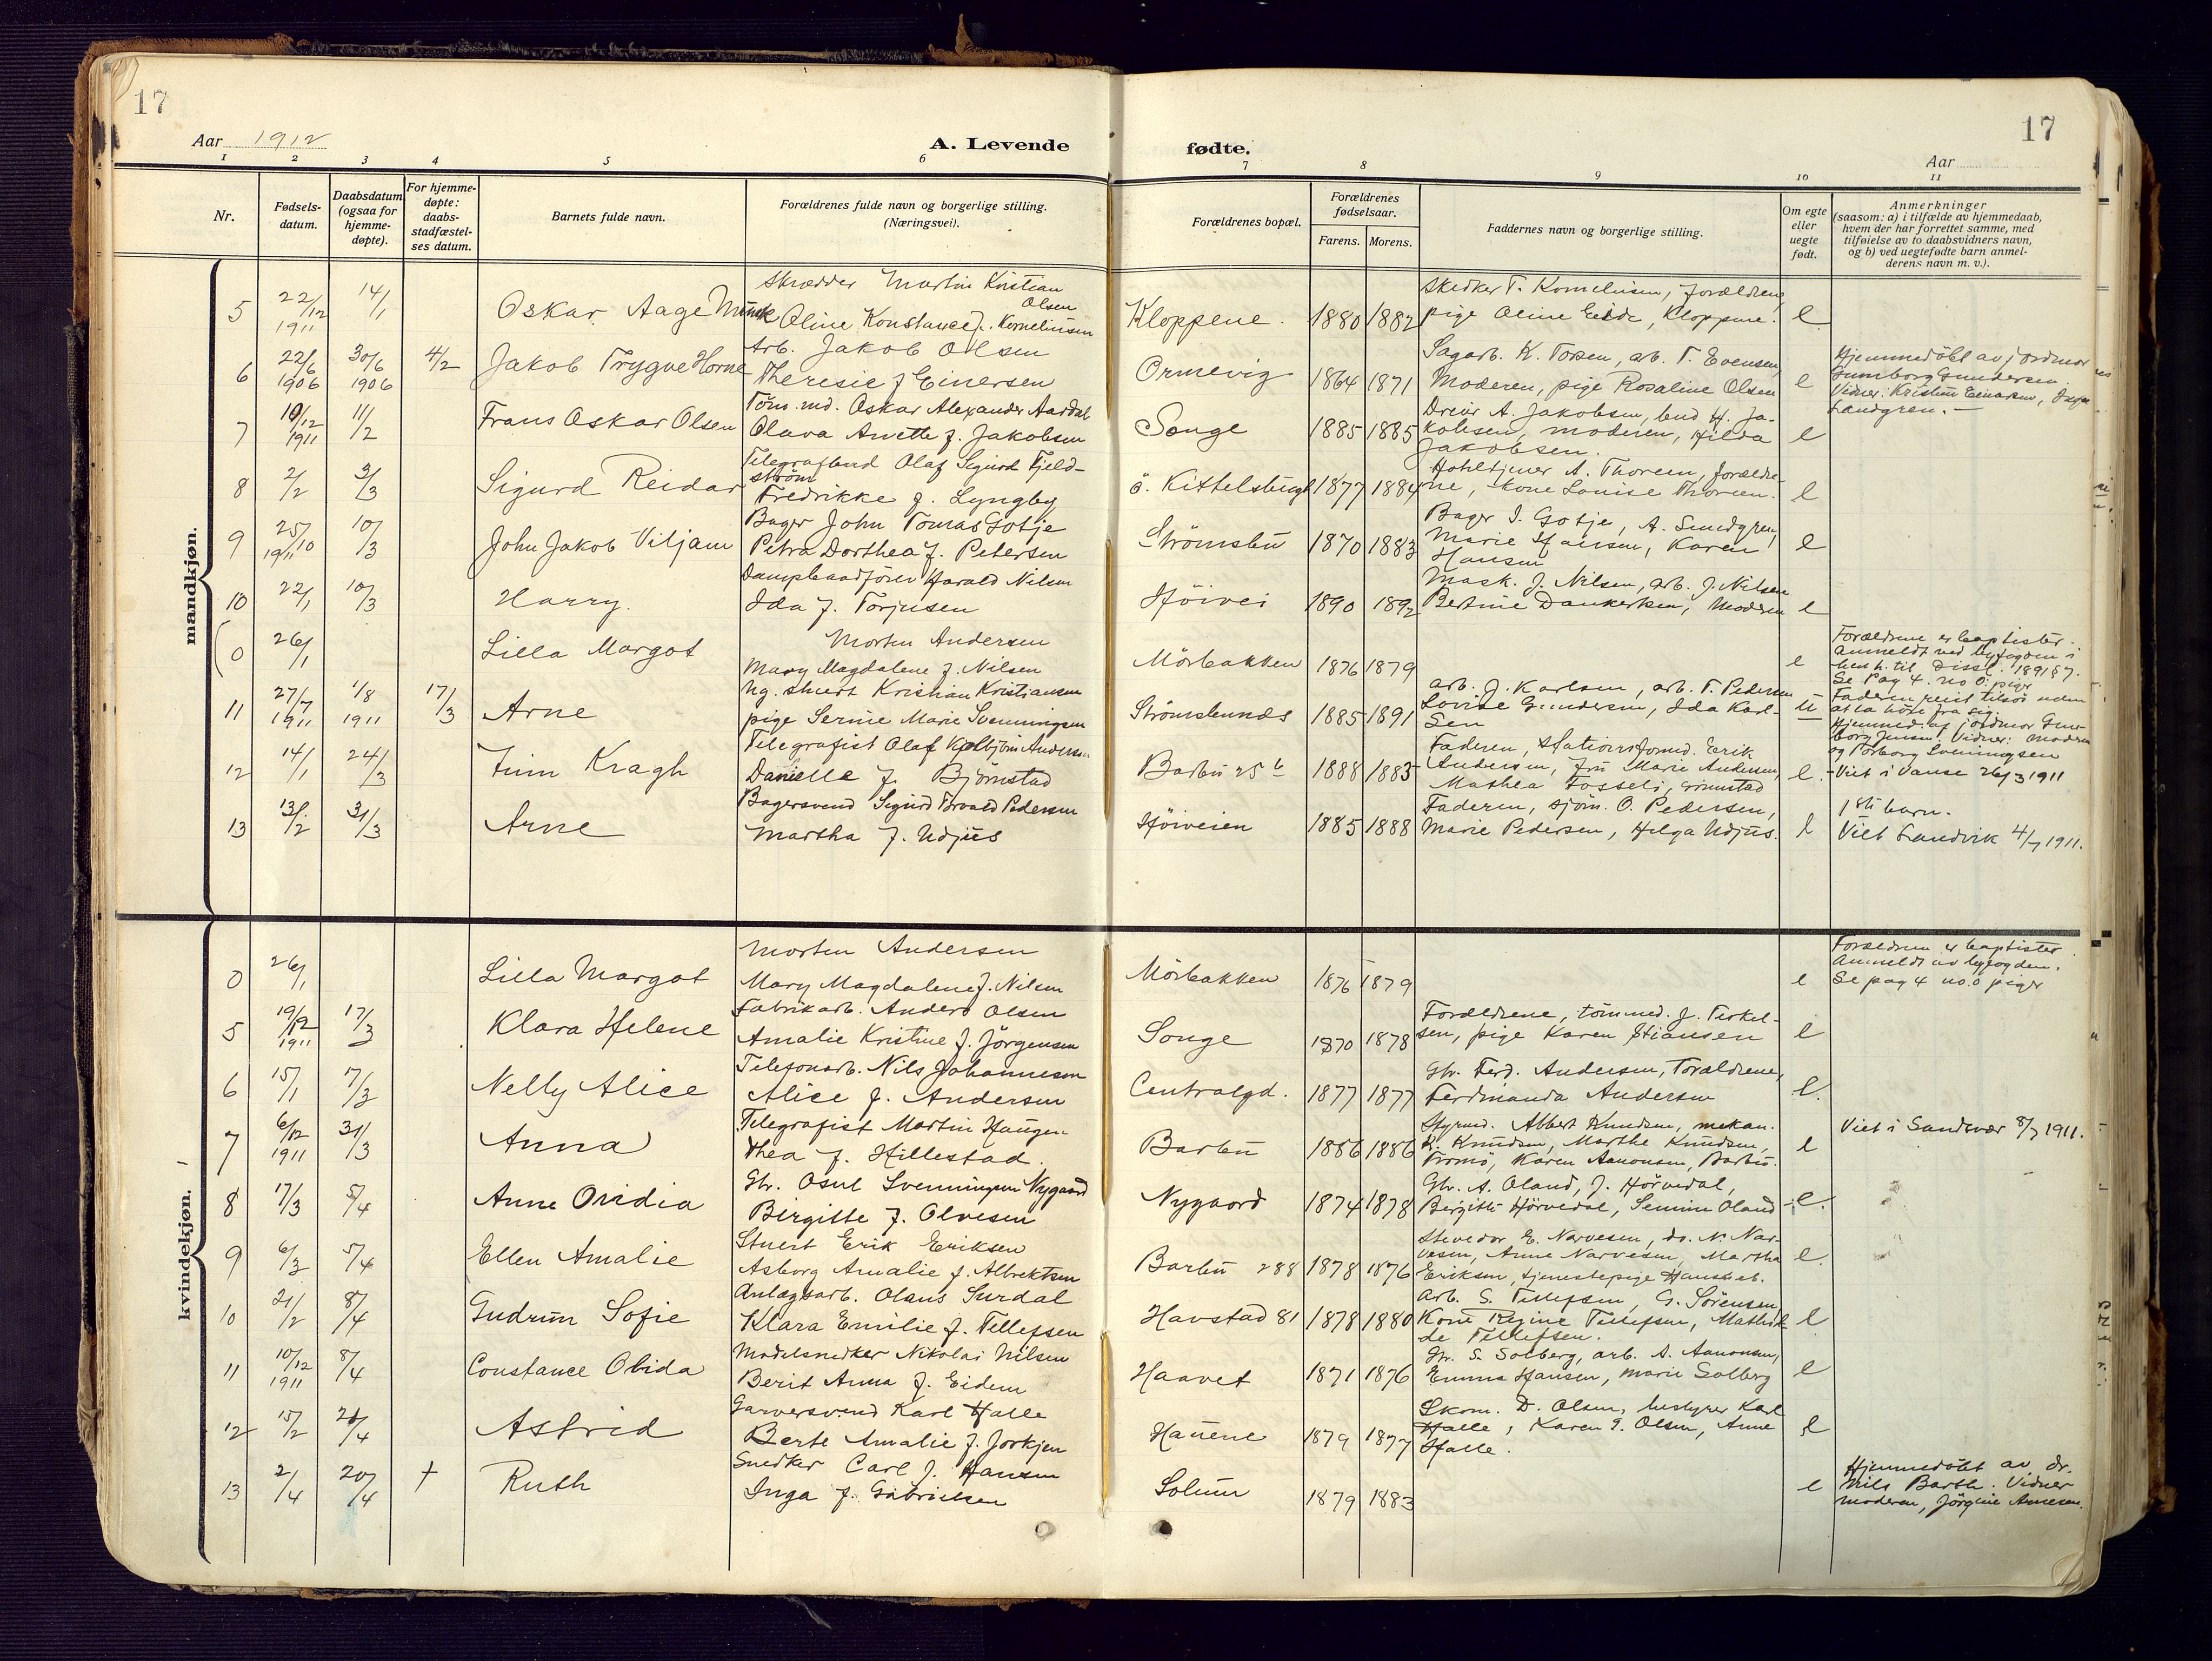 17
17
Aar 1912
A. Levende
fødte.
Aar
1 2 3 4 5 6 7 8 9 10 11
Nr.
Fødsels-
datum.
Daabsdatum
(ogsaa for
hjemme-
døpte).
For hjemme-
døpte:
daabs-
stadfæstel-
ses datum.
Barnets fulde navn.
Forældrenes fulde navn og borgerlige stilling.
(Næringsvei).
Forældrenes bopæl.
Forældrenes
fødselsaar.
Farens. Morens.
Faddernes navn og borgerlige stilling.
Om egte
eller
uegte
født.
Anmerkninger
(saasom: a) i tilfælde av hjemmedaab,
hvem der har forrettet samme, med
tilføielse av to daabsvidners navn,
og b) ved uegtefødte barn anmel-
derens navn m. v.).
mandkjøn.
5 22/12 1911 14/1 Oskar Aage Munk
Skrædder Martin Kristian
Olsen
Oline Konstance f. Korneliusen
Kloppene. 1880 1882
Snedker T. Korneliusen, Forældrene,
pige Oline Eide, Kloppene. e
6 22/6 1906 30/6 1906 4/2 Jakob Trygve Horne
Arb. Jakob Olsen
Theresie f Einersen
Ormevig 1864 1871
Sagarb. K. Tossen, arb. T. Evensen,
Moderen, pige Rosaline Olsen e
Hjemmedöbt av jordmor
Gunborg Gundersen
Vidner: Kristine Einarsen, Inga
Landgren. —
7 10/12 1911 11/2 Frans Oskar Olsen
Töm. md. Oskar Alexander Aardal
Olava Anette f. Jakobsen
Songe 1885 1885
Dreier A. Jakobsen, bud H. Ja-
kobsen, moderen, Hilda
Jakobsen. e
8 2/2 3/3 Sigurd Reidar
Telegrafbud Olaf Sigurd Fjeld-
ström
Fredrikke f. Lyngby
ö. Kittelsbugt 1877 1884
Hoteltjener A. Thorsen, forældre-
ne, kone Louise Thorsen. e
9 25/10 1911 10/3 John Jakob Viljam
Bager John Tomas Gotje
Petra Dorthea f. Petersen
Strömsbu 1870 1883
Bager J. Gotje, A. Sundgren,
Marie Hansen, Karen
Hansen e
10 22/1 10/3 Harry.
Dampbaadförer Harald Nilsen
Ida f. Torjusen
Höivei 1890 1892
Mask. J. Nilsen, arb. J. Nilsen
Bertine Dankertsen, Moderen e
(0 26/1 Lilla Margot
Morten Andersen
Mary Magdalene f. Nilsen
Mörbakken 1876 1879 e
Forældrene er baptister.
Anmeldt ved byfogden i
henh. til Dissl. 1891 § 7.
Se Pag 4. no 0. piger
11 27/7 1911 1/8 1911 17/3 Arne
Ug. stuert Kristian Kristiansen
pige Sernie Marie Svenningsen
Strömsbunds 1885 1891
arb. J. Karlsen, arb. T. Pedersen
Lovise Gundersen, Ida Karl-
sen u
Faderen reist tilsjös uden
at la höre fra sig.
Hjemmed. af jordmor Gun-
borg Jensen. Vidner: Moderen
og Torborg Svenningsen
12 14/1 24/3 Finn Kragh
Telegrafist Olaf Kolbjörn Andersen
Danielle f. Björnstad
Barbu 25 b 1888 1883
Faderen, Stationsformd. Erik
Andersen, Fru Marie Andersen,
Mathea Fosseli, Grimstad e.
- Viet i Vanse 26/3 1911
13 13/2 31/3 Arne
Bagersvend Sigurd Torvald Pedersen
Martha f. Udjus
Höiveien 1885 1888
Faderen, sjöm. O. Pedersen,
Marie Pedersen, Helga Udjus. e
1ste barn.
Viet Landvik 4/7 1911.
kvindekjøn.
0 26/1 Lilla Margot
Morten Andersen
Mary Magdalene f. Nilsen
Mörbakken 1876 1879 e
Forældrene er baptister.
Anmeldt av byfogden.
Se pag 4 no. 0 piger
5 19/12 1911 17/3 Klara Helene
Fabrikarb. Anders Olsen
Amalie Kristine f. Jörgensen
Songe 1870 1878
Forældrene, tömmed. J. Terkel-
sen, pige Karen Stiansen e
6 15/1 17/3 Nelly Alice
Telefonarb. Nils Johannesen
Alice f. Andersen
Centralgd. 1877 1877
Gbr. Ferd. Andersen, Forældrene,
Ferdinanda Andersen e.
7 6/12 1911 31/3 Anna
Telegrafist Martin Haugen
Thea f. Hillestad.
Barbu 1886 1886
Styrmd. Albert Knudsen, mekan.
K. Knudsen, Marthe Knudsen,
Tromö, Karen Aanonsen, Barbu. e
Viet i Sandsvær 8/7 1911.
8 17/3 5/4 Anne Ovidia
Gbr. Osul Svenningsen Nygaard
Birgitte f. Olvesen
Nygaard 1874 1878
Gbr. A. Oland, J. Hörvedal,
Birgitte Hörvedal, Semine Oland e.
9 6/3 5/4 Ellen Amalie
Stuert Erik Eriksen
Asborg Amalie f. Albrektsen
Barbu 288 1878 1876
Stuedor E. Narvesen, do. N. Nar-
vesen, Anne Narvesen, Martha
Eriksen, tjenestepige Hanshet. e.
10 21/2 8/4 Gudrun Sofie
Anlægsarb. Olaus Surdal
Klara Emilie f. Tellefsen
Havstad 81 1878 1880
Arb. S. Tellefsen, G. Sörensen,
Kone Regine Tellefsen, Mathil-
de Tellefsen. e
11 10/12 1911 8/4 Constance Obida
Modelsnedker Nikolai Nilsen
Berit Anna f. Eidem
Haavet 1871 1876
Gbr. S. Solberg, arb. A. Aanonsen,
Emma Hansen, Marie Solberg e
12 15/2 21/4 Astrid
Garversvend Karl Halle
Berte Amalie f. Jorkjen
Hauene 1879 1877
Skom. D. Olsen, bestyrer Karl
Halle, Karen G. Olsen, Anne
Halle. e
13 2/4 20/4 † Ruth
Snedker Carl J. Hansen
Inga f. Gabrielsen
Solum 1879 1883 e
Hjemmedöbt av dr.
Nils Barth. Vidner
moderen, Jörgine Arnesen.